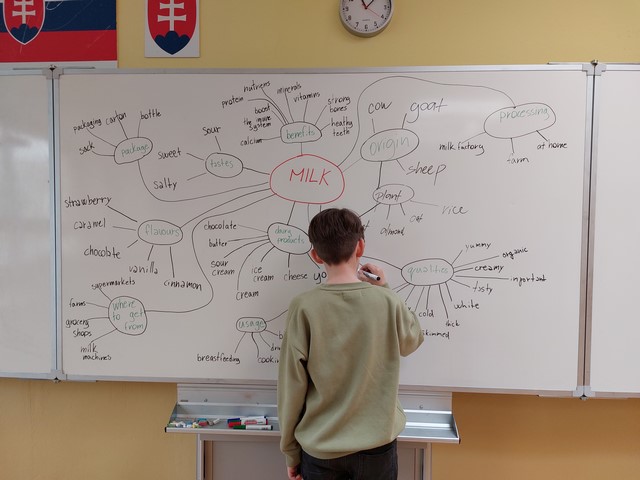 MILK
benefits
nutrients
minerals
vitamins
protein
boost
the imune
system
calcium
strong
bones
healthy
teeth
tastes
sour
sweet
salty
package
packaging
carton
bottle
sack
flavours
strawberry
caramel
chocolate
vanilla
cinnamon
where
to get
from
supermarkets
farm
grocery
shops
milk
machines
dairy
products
chocolate
butter
sour
cream
ice
cream
cream
cheese
yo
usage
breastfeeding
origin
cow
goat
sheep
plant
almond
oat
rice
processing
milk factory
farm
at home
qualities
yummy
organic
creamy
important
tasty
white
thick
cold
skimmed